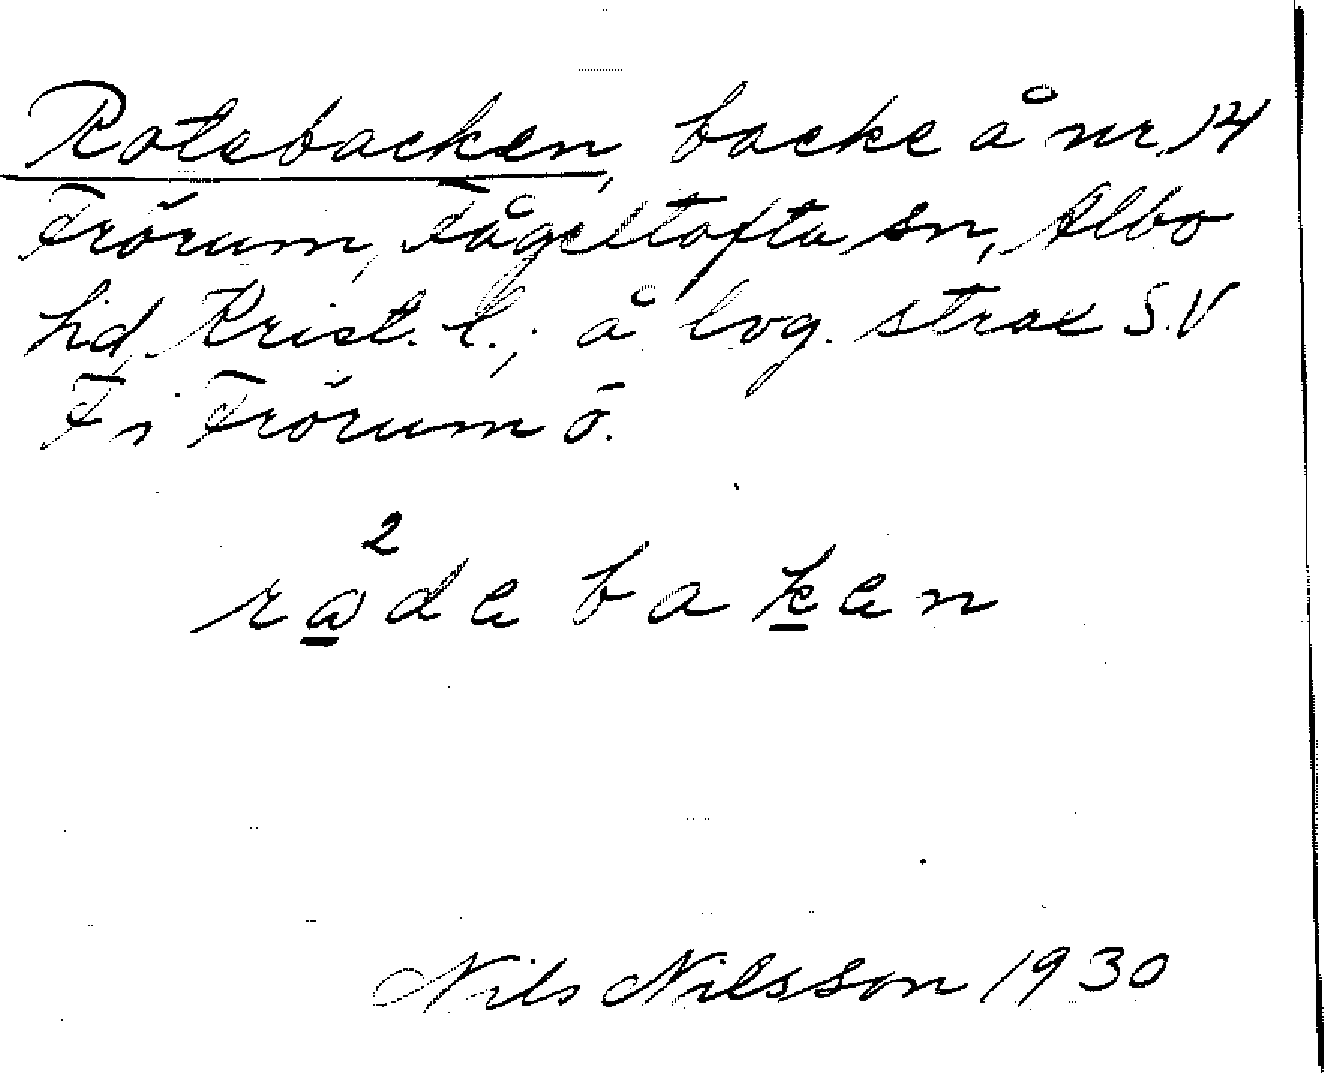 Rotebacken, backe å nr 14
Frörum, Fågeltofta sn, Albo
hd, Krist. l.; å lvg. strax S.V
F i Frörum ö.
2
radebaken
Nils Nilsson 1930